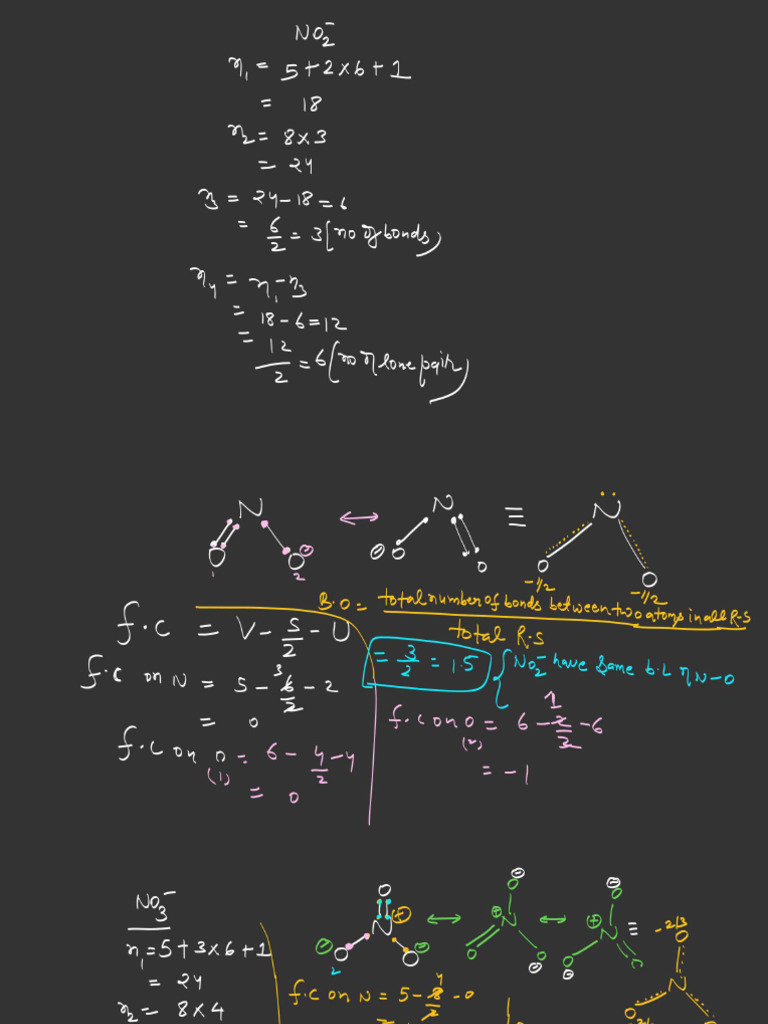 NO₂⁻
n₁ = 5+2×6+1
= 18
n₂ = 8×3
= 24
n₃ = 24-18 = 6
= 6/2 = 3 (no of bonds)
n₄ = n₁-n₃
= 18-6 = 12
= 12/2 = 6 (no of lone pair)
N ↔ N ≡ N
O O⊖ ⊖O O O O
1 2 -1/2 -1/2
B.O = total number of bonds between two atoms in all R-S / total R.S
f.c = V - S/2 - U
= 3/2 = 1.5 { NO₂⁻ have same b.L of N-O
f.c on N = 5 - 6/2 - 2
3
= 0
f.c on O (2) = 6 - 2/2 - 6
1
= -1
f.c on O (1) = 6 - 4/2 - 4
= 0
NO₃⁻
n₁ = 5+3×6+1
= 24
n₂ = 8×4
O ⊖ O ⊖ O
N ⊕ ↔ ⊕ N ↔ ⊕ N ≡ -2/3 O
⊖ O O ⊖ O O ⊖ O ⊖ N
2
f.c on N = 5 - 8/2 - 0
4
O